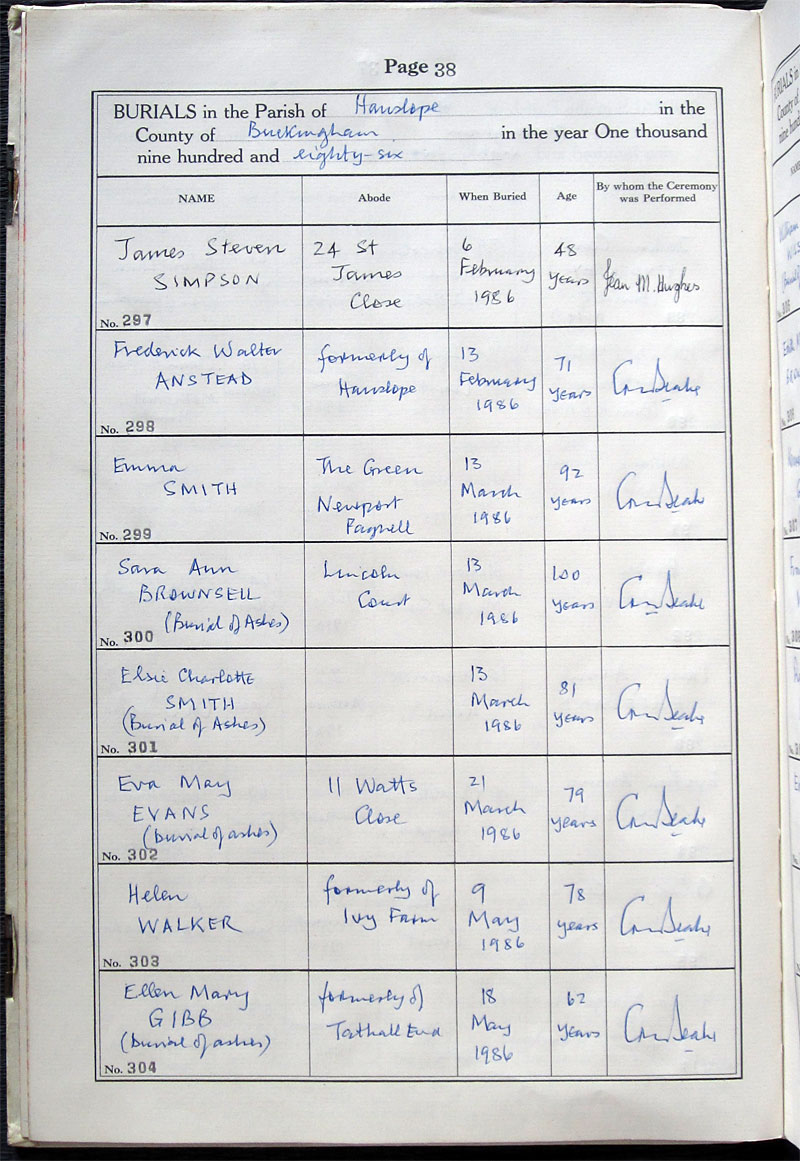 Page 38
BURIALS in the Parish of Hanslope in the
County of Buckingham in the year One thousand
nine hundred and eighty-six
NAME Abode When Buried Age By whom the Ceremony was Performed
James Steven
SIMPSON
No. 297
24 St
James
Close
6
February
1986
48
years
Jean M. Hughes
Frederick Walter
ANSTEAD
No. 298
formerly of
Hanslope
13
February
1986
71
years
Emma
SMITH
No. 299
The Green
Newport
Pagnell
13
March
1986
92
years
Sara Ann
BROWNSELL
(Burial of Ashes)
No. 300
Lincoln
Court
13
March
1986
100
years
Elsie Charlotte
SMITH
(Burial of Ashes)
No. 301
13
March
1986
81
years
Eva May
EVANS
(burial of ashes)
No. 302
11 Watts
Close
21
March
1986
79
years
Helen
WALKER
No. 303
formerly of
Ivy Farm
9
May
1986
78
years
Ellen Mary
GIBB
(burial of ashes)
No. 304
formerly of
Tathall End
18
May
1986
62
years